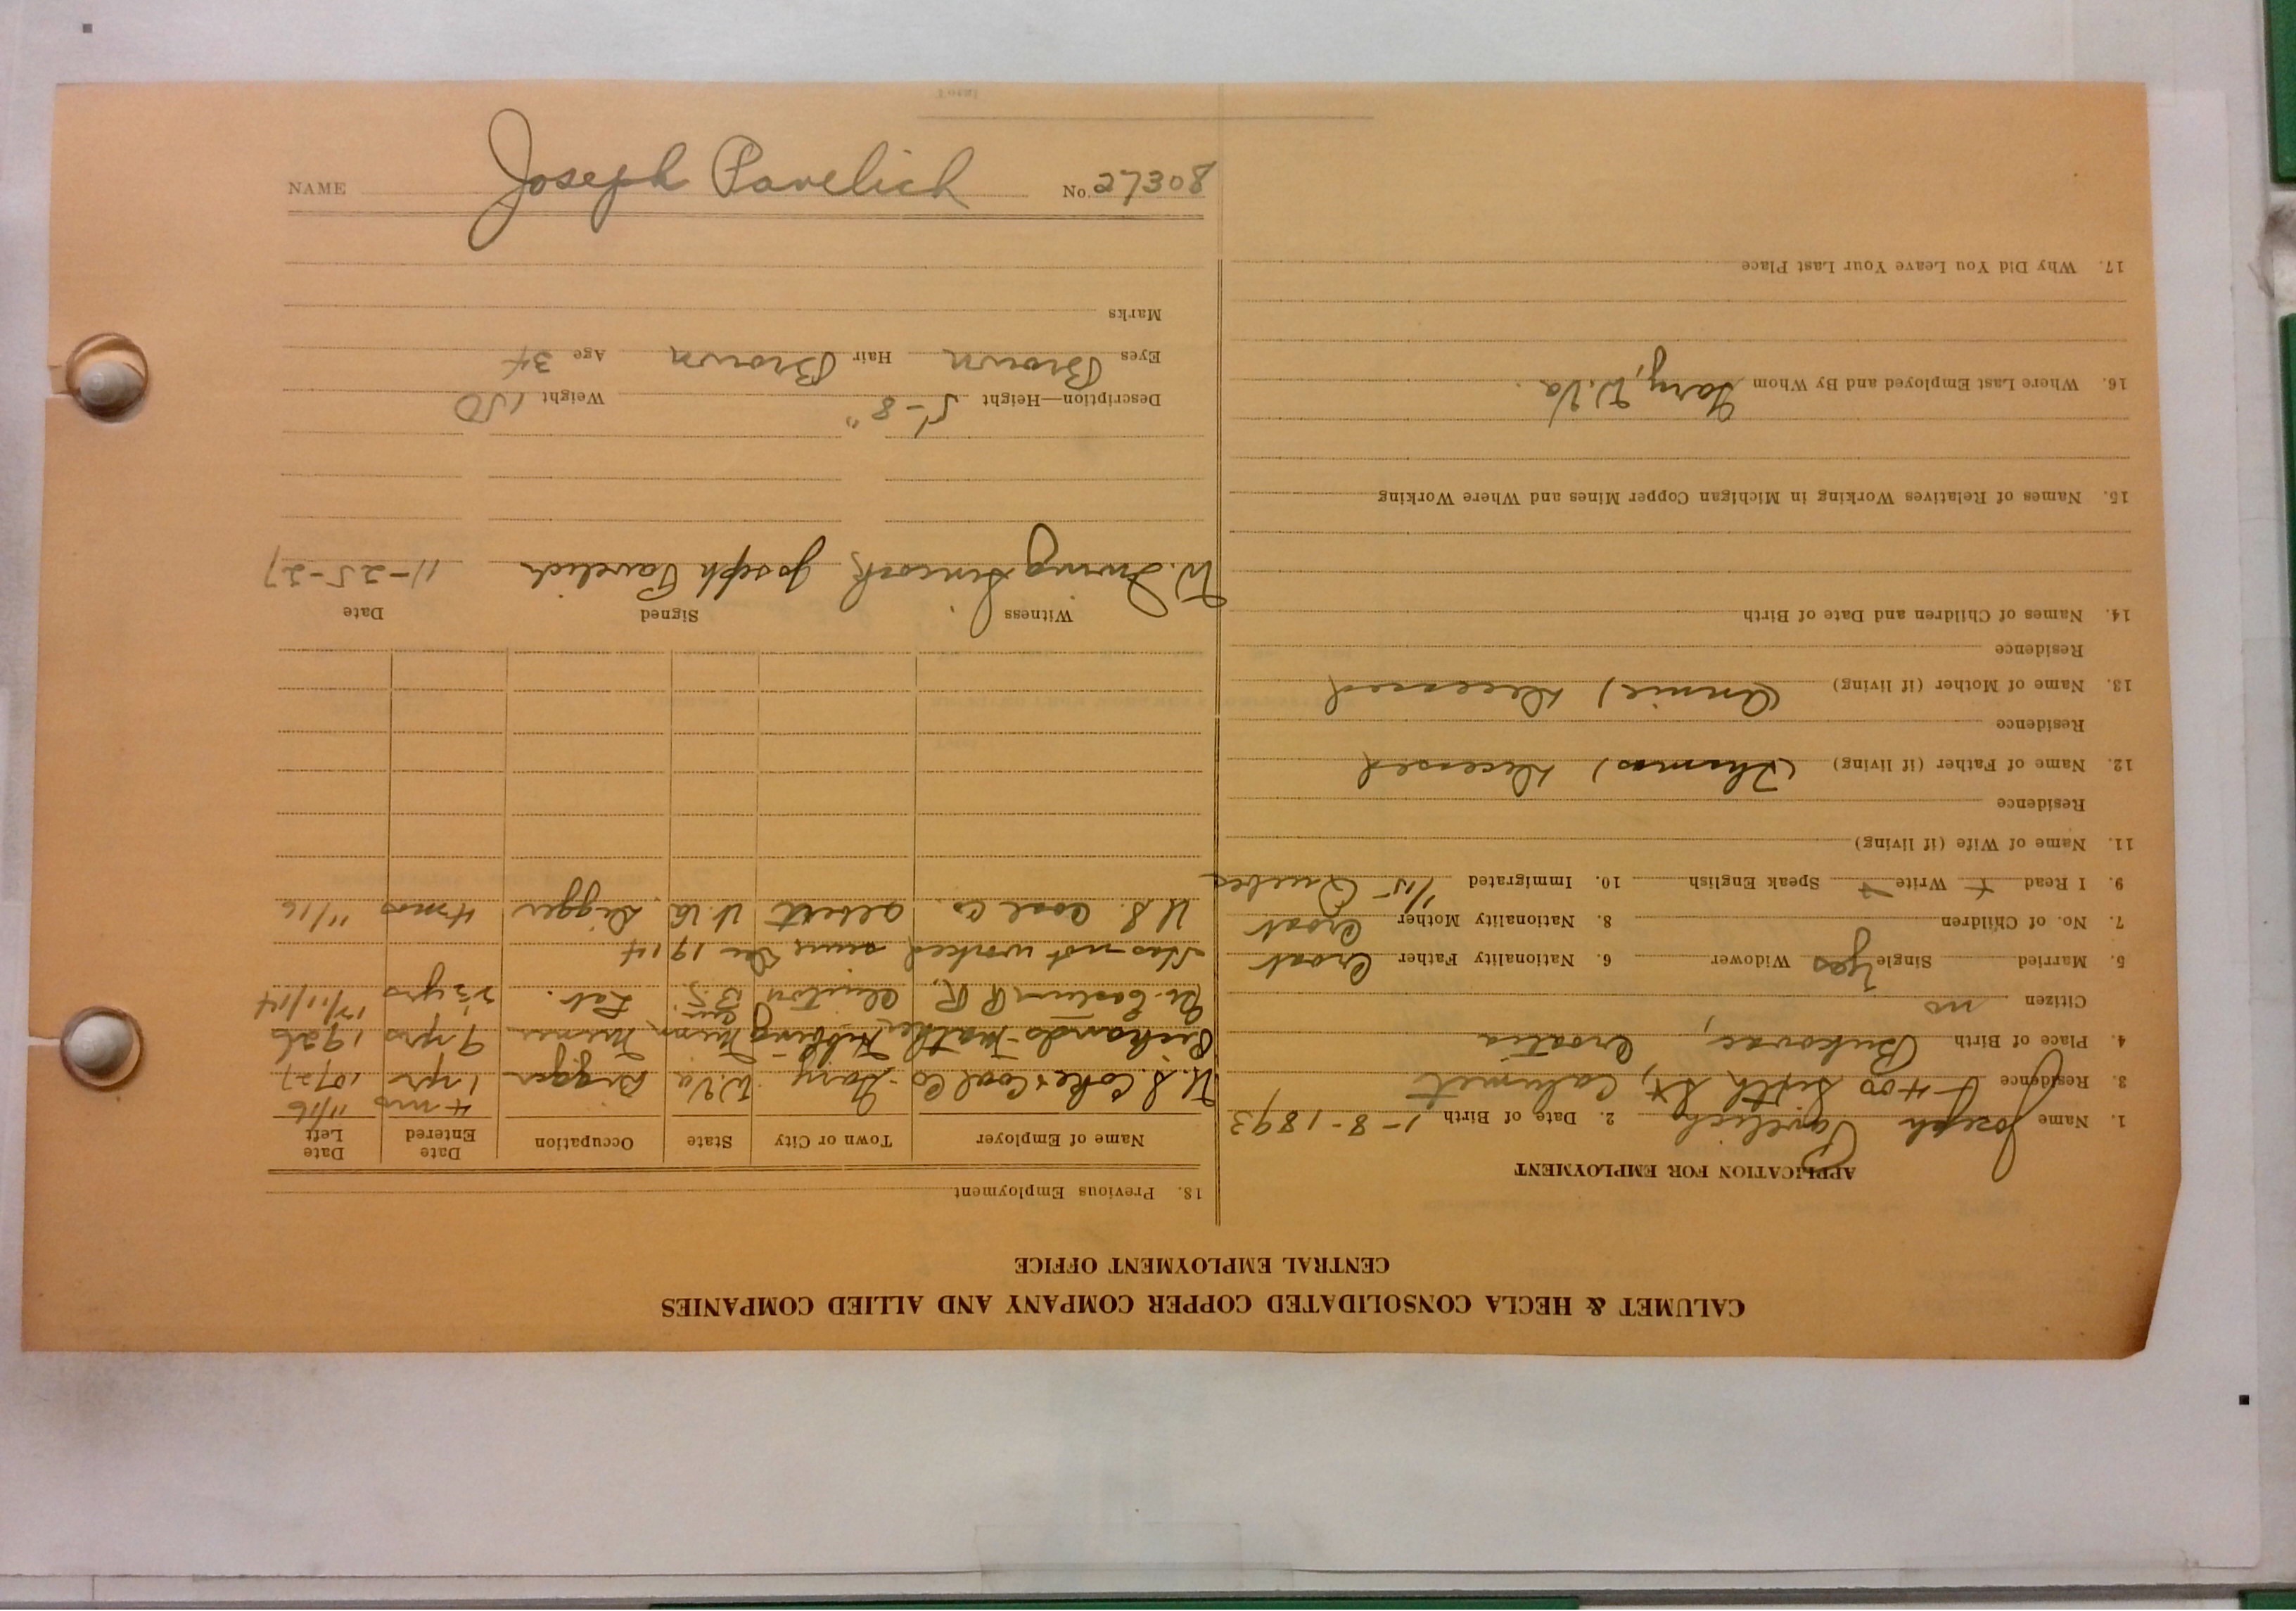 CALUMET & HECLA CONSOLIDATED COPPER COMPANY AND ALLIED COMPANIES
CENTRAL EMPLOYMENT OFFICE
APPLICATION FOR EMPLOYMENT
1. Name Joseph Pavelich 2. Date of Birth 1-8-1893
3. Residence 400 Sixth St, Calumet
4. Place of Birth Bukovac, Croatia
Citizen no
5. Married Single Yes Widower 6. Nationality Father Croat
7. No. of Children 8. Nationality Mother Croat
9. I Read + Write + Speak English 10. Immigrated 1/15 Quebec
11. Name of Wife (if living)
Residence
12. Name of Father (if living) (Thomas) Deceased
Residence
13. Name of Mother (if living) (Annie) Deceased
Residence
14. Names of Children and Date of Birth
15. Names of Relatives Working in Michigan Copper Mines and Where Working
16. Where Last Employed and By Whom Gary, W. Va.
17. Why Did You Leave Your Last Place
18. Previous Employment
Name of Employer Town or City State Occupation Date Entered Date Left
4 mos 11/16
U. S. Coke & Coal Co Gary W. Va Digger 1 yr 10/27
Mather, Hibbing Minn Miner 9 yrs 1926
Eastern R R, Clinton Lab. 2 1/2 yrs 12/11/14
Has not worked since Dec 1914
U. S. Coal Co. W. Va. Digger 4 mos 11/16
Witness Signed Date
W. Irving Joseph Pavelich 11-25-27
Description—Height 5'-8" Weight 150
Eyes Brown Hair Brown Age 34
Marks
NAME Joseph Pavelich No. 27308